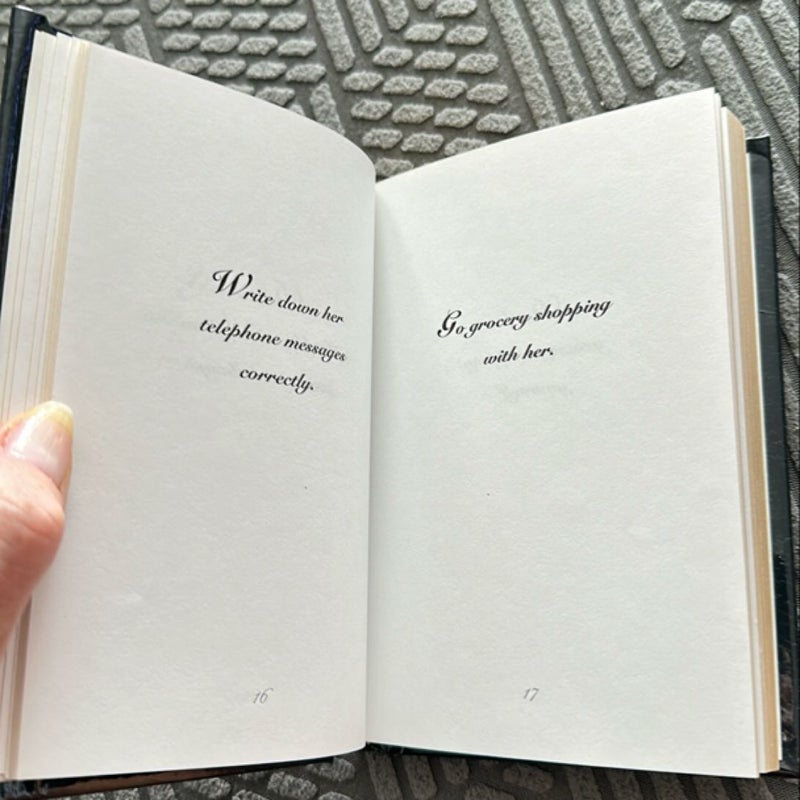 Write down her
telephone messages
correctly.
16
Go grocery shopping
with her.
17